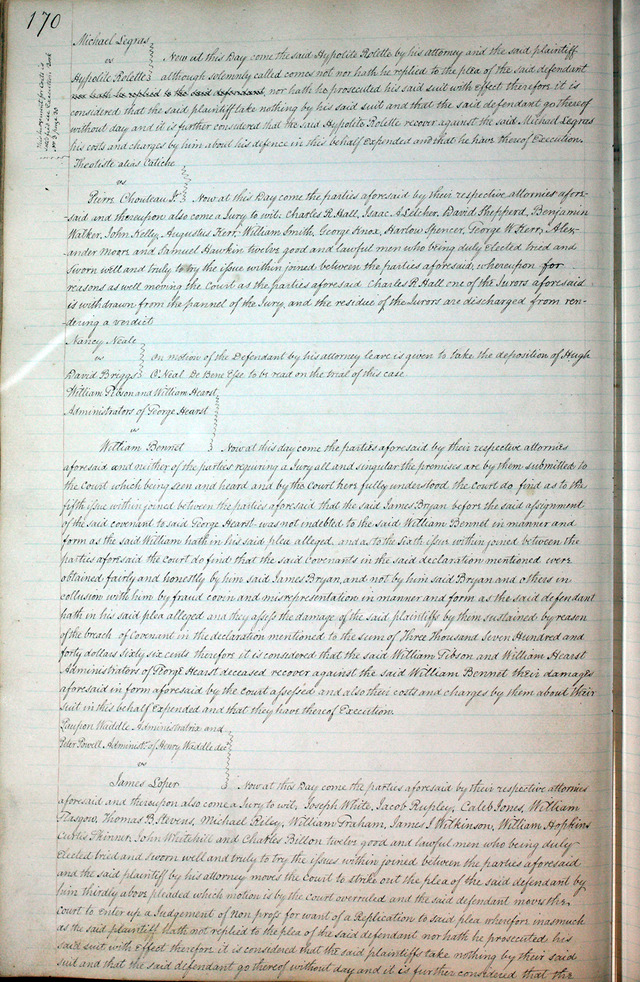 170
Michael Legras
vs
Now at this Day come the said Hypolite Rolette by his attorney and the said plaintiff
Hypolite Rolette although solemnly called comes not nor hath he replied to the plea of the said defendant
nor hath he replied to the said defendant, nor hath he prosecuted his said suit with Effect therefore it is
considered that the said plaintiff take nothing by his said suit and that the said defendant go thereof
without day and it is further considered that the said Hypolite Rolette recover against the said Michael Legras
his costs and charges by him about his defence in this behalf Expended and that he have thereof Execution.
Theoliste alias Catiche
vs
Pierre Chouteau Jr. Now at this Day come the parties aforesaid by their respective attornies afore-
said and thereupon also come a Jury to wit, Charles R. Hall, Isaac A. Letcher, David Shepperd, Benjamin
Walker, John Kelly, Augustus Kerr, William Smith, George Knox, Harlow Spencer, George W. Kerr, Alex-
ander Moore and Samuel Hawkin twelve good and lawful men who being duly Elected tried and
Sworn well and truly to try the issue within joined between the parties aforesaid, whereupon for
reasons as well moving the Court as the parties aforesaid Charles R. Hall one of the Jurors aforesaid
is withdrawn from the pannel of the Jury, and the residue of the Jurors are discharged from ren-
dering a verdict
Nancy Neale
vs
On motion of the Defendant by his attorney leave is given to take the deposition of Hugh
David Briggs O'Neal De Bene Esse to be read on the trial of this case
William Tibson and William Hearst
Administrators of George Hearst
vs
William Bennet Now at this day come the parties aforesaid by their respective attornies
aforesaid and neither of the parties requiring a Jury all and singular the premises are by them submitted to
the Court which being seen and heard and by the Court here fully understood, the Court do find as to the
fifth issue within joined between the parties aforesaid that the said James Bryan before the said assignment
of the said covenant to said George Hearst was not indebted to the said William Bennet in manner and
form as the said William hath in his said plea alleged, and as to the sixth issue within joined between the
parties aforesaid the court do find that the said covenants in the said declaration mentioned were
obtained fairly and honestly by him said James Bryan, and not by him said Bryan and others in
collusion with him by fraud covin and misrepresentation in manner and form as the said defendant
hath in his said plea alleged and they assess the damage of the said plaintiffs by them sustained by reason
of the breach of Covenant in the declaration mentioned to the sum of Three Thousand Seven Hundred and
forty dollars sixty six cents therefore it is considered that the said William Tibson and William Hearst
Administrators of George Hearst deceased recover against the said William Bennet their damages
aforesaid in form aforesaid by the court assessed and also their costs and charges by them about their
Suit in this behalf Expended and that they have thereof Execution.
Waddle Administratrix and
Peter Powell Administr. of Henry Waddle dec
vs
James Loper Now at this Day come the parties aforesaid by their respective attornies
aforesaid and thereupon also come a Jury to wit, Joseph White, Jacob Rupley, Caleb Jones, William
Glasgow, Thomas B. Stevens, Michael Riley, William Graham, James I Wilkinson, William Hopkins
Curtis Skinner, John Whitehill and Charles Billon twelve good and lawful men who being duly
Elected tried and sworn well and truly to try the issues within joined between the parties aforesaid
and the said plaintiff by his attorney moves the Court to strike out the plea of the said defendant by
him thirdly above pleaded which motion is by the court overruled and the said defendant moves the
court to enter up a Judgement of Non pross for want of a Replication to said plea wherefore inasmuch
as the said plaintiff hath not replied to the plea of the said defendant nor hath he prosecuted his
said suit with Effect therefore it is considered that the said plaintiffs take nothing by their said
suit and that the said defendant go thereof without day and it is further considered that the